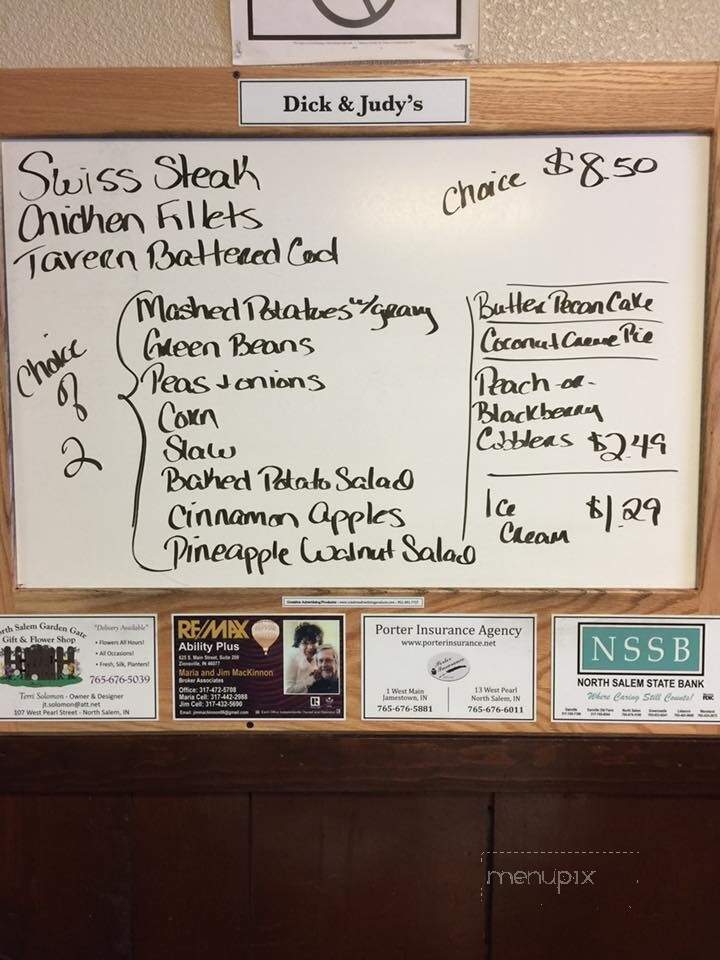 Dick & Judy's
Swiss Steak
Chicken Fillets
Tavern Battered Cod
Choice $8.50
Choice
of
2
Mashed Potatoes w/gravy
Green Beans
Peas + onions
Corn
Slaw
Baked Potato Salad
Cinnamon Apples
Pineapple Walnut Salad
Butter Pecan Cake
Coconut Creme Pie
Peach -or-
Blackberry
Cobblers $2.49
Ice
Cream $1.29
rth Salem Garden Gate
Gift & Flower Shop
"Delivery Available"
• Flowers All Hours!
• All Occasions!
• Fresh, Silk, Planters!
765-676-5039
Terri Solomon - Owner & Designer
jt.solomon@att.net
107 West Pearl Street - North Salem, IN
RE/MAX
Ability Plus
625 S. Main Street, Suite 200
Zionsville, IN 46077
Maria and Jim MacKinnon
Broker Associates
Office: 317-472-5708
Maria Cell: 317-442-2988
Jim Cell: 317-432-5690
Porter Insurance Agency
www.porterinsurance.net
1 West Main
Jamestown, IN
765-676-5881
13 West Pearl
North Salem, IN
765-676-6011
NSSB
NORTH SALEM STATE BANK
Where Caring Still Counts!
menupix